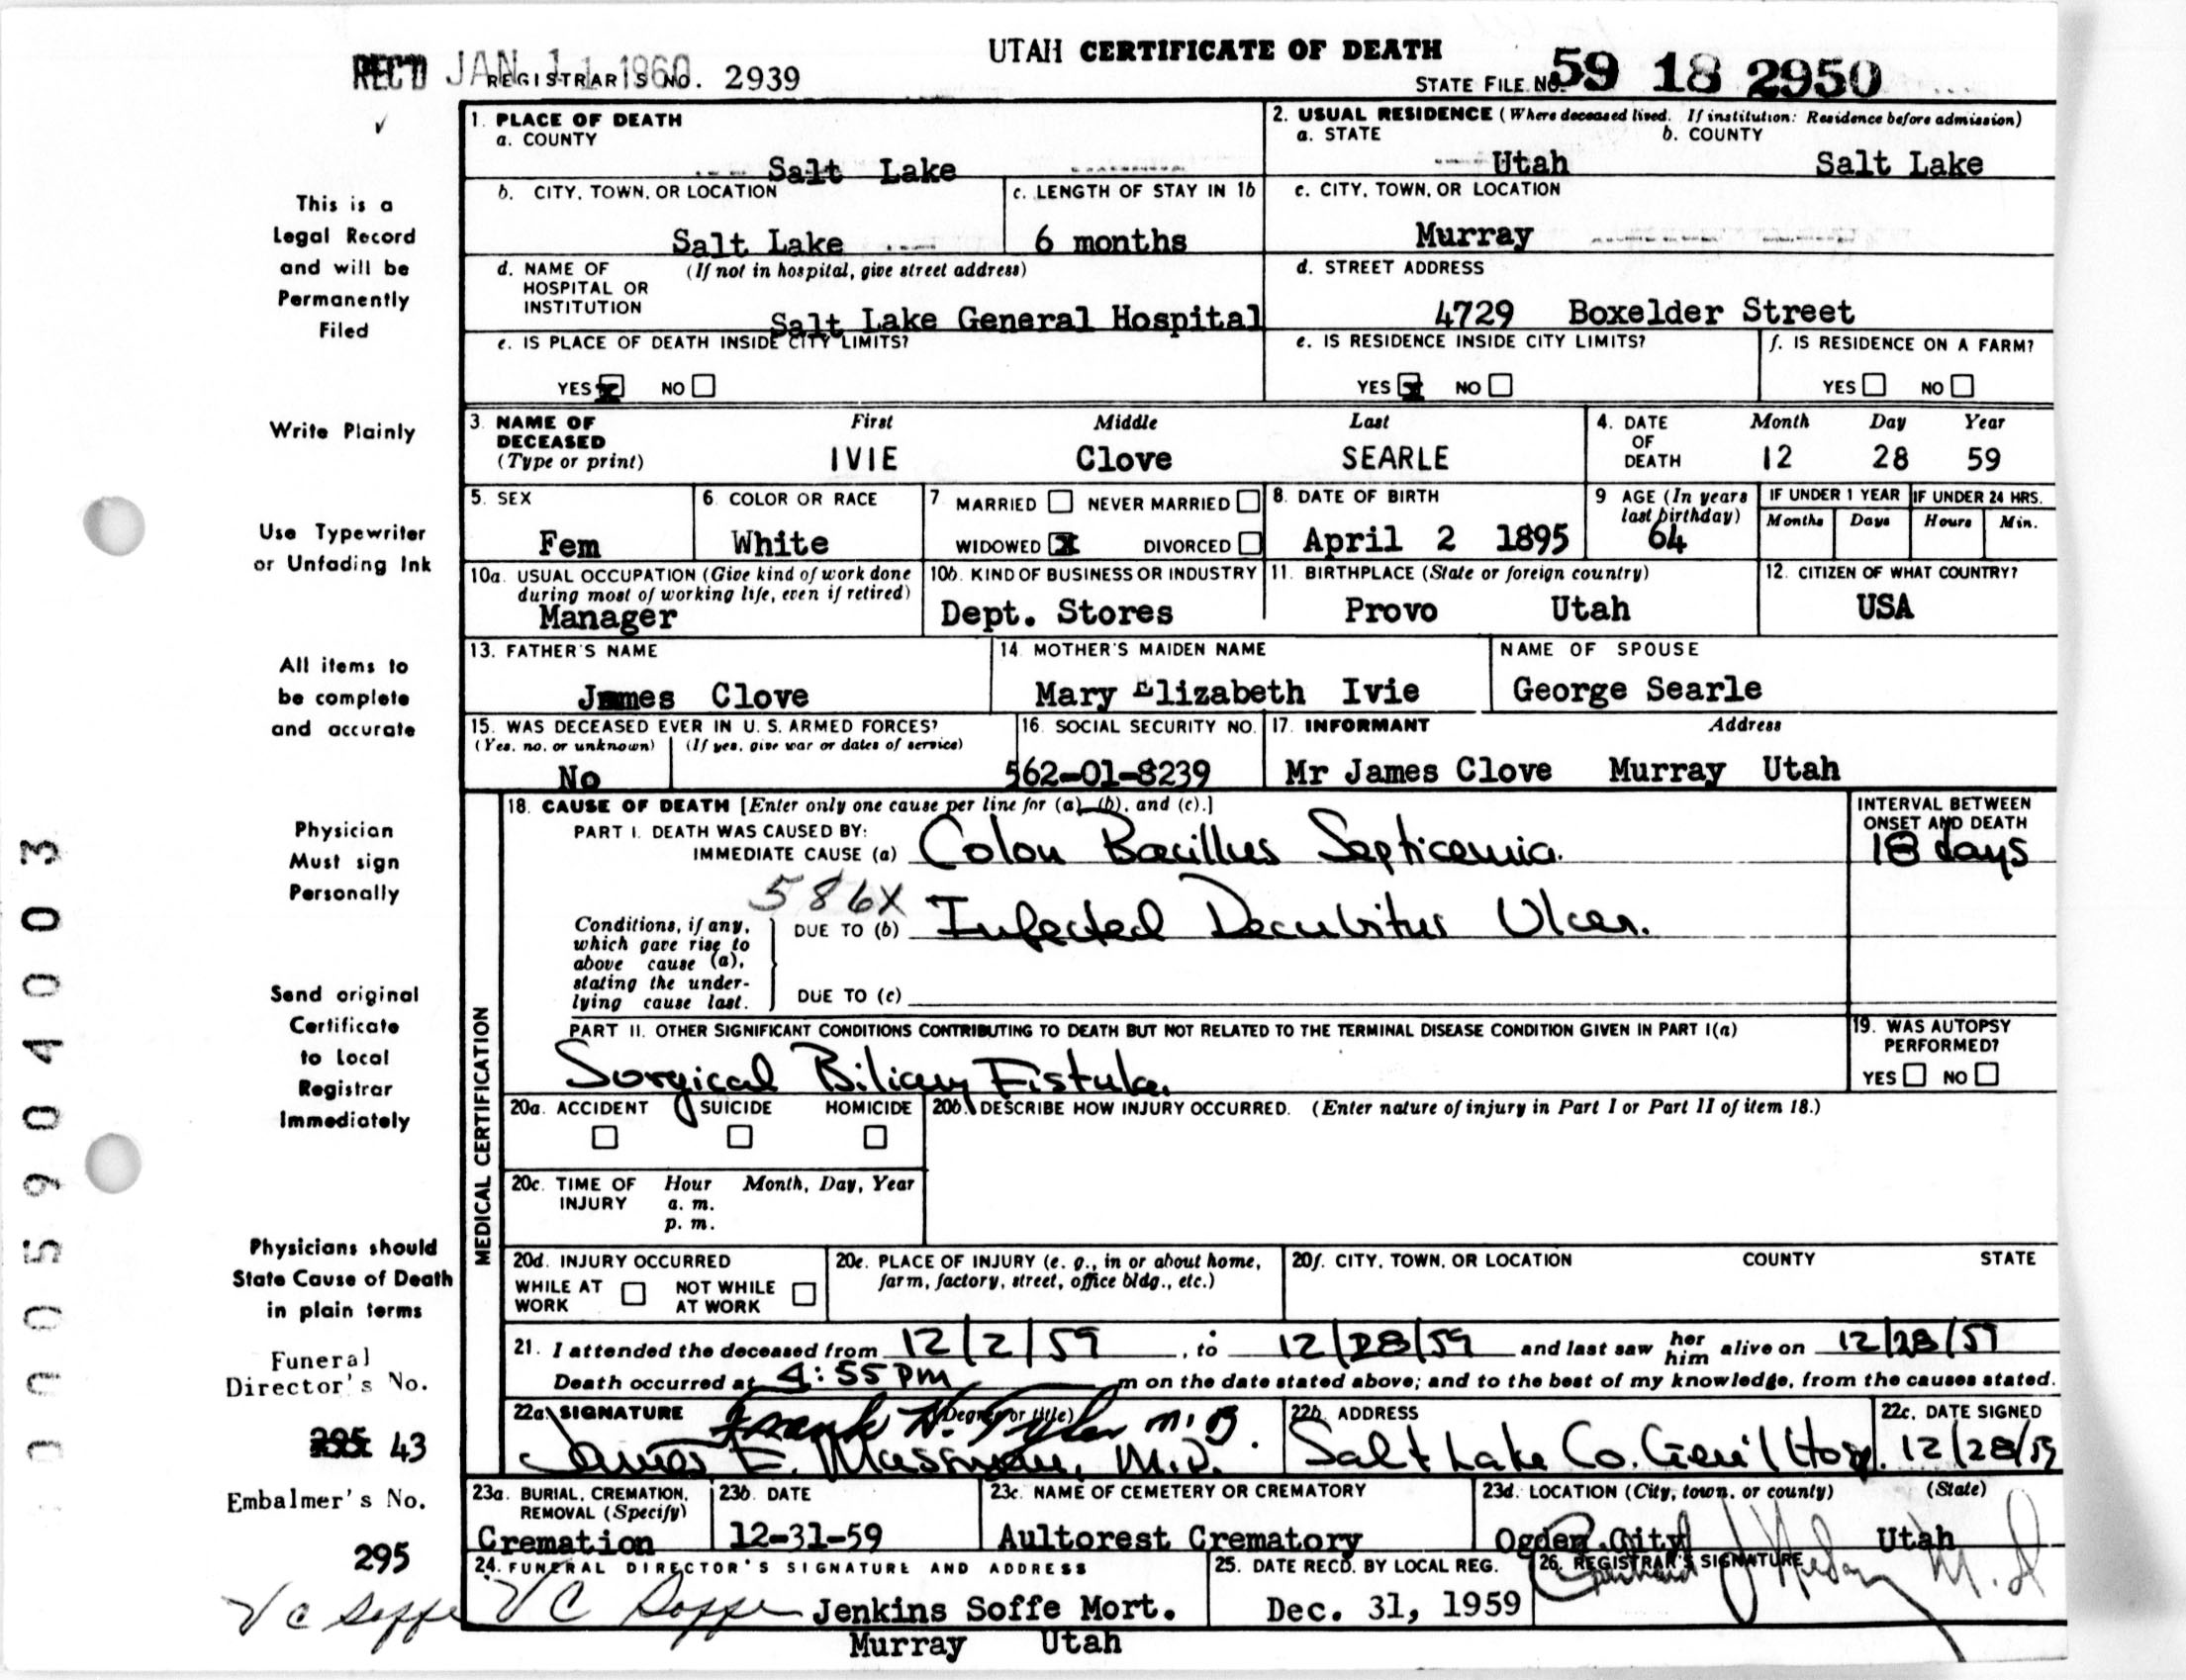 UTAH CERTIFICATE OF DEATH
REC'D JAN 11 1960
REGISTRAR'S NO. 2939
STATE FILE NO. 59 18 2950
This is a
Legal Record
and will be
Permanently
Filed
Write Plainly
Use Typewriter
or Unfading Ink
All items to
be complete
and accurate
Physician
Must sign
Personally
Send original
Certificate
to Local
Registrar
Immediately
Physicians should
State Cause of Death
in plain terms
Funeral
Director's No.
295 43
Embalmer's No.
295
V C Soffe
0005904003
1. PLACE OF DEATH
a. COUNTY
Salt Lake
b. CITY, TOWN, OR LOCATION
Salt Lake
c. LENGTH OF STAY IN 1b
6 months
d. NAME OF HOSPITAL OR INSTITUTION (If not in hospital, give street address)
Salt Lake General Hospital
e. IS PLACE OF DEATH INSIDE CITY LIMITS?
YES X NO
2. USUAL RESIDENCE (Where deceased lived. If institution: Residence before admission)
a. STATE
Utah
b. COUNTY
Salt Lake
c. CITY, TOWN, OR LOCATION
Murray
d. STREET ADDRESS
4729 Boxelder Street
e. IS RESIDENCE INSIDE CITY LIMITS?
YES X NO
f. IS RESIDENCE ON A FARM?
YES NO
3. NAME OF DECEASED (Type or print)
First Middle Last
IVIE Clove SEARLE
4. DATE OF DEATH
Month Day Year
12 28 59
5. SEX
Fem
6. COLOR OR RACE
White
7 MARRIED NEVER MARRIED
WIDOWED X DIVORCED
8. DATE OF BIRTH
April 2 1895
9 AGE (In years last birthday)
64
IF UNDER 1 YEAR
Months Days
IF UNDER 24 HRS.
Hours Min.
10a. USUAL OCCUPATION (Give kind of work done during most of working life, even if retired)
Manager
10b. KIND OF BUSINESS OR INDUSTRY
Dept. Stores
11. BIRTHPLACE (State or foreign country)
Provo Utah
12. CITIZEN OF WHAT COUNTRY?
USA
13. FATHER'S NAME
James Clove
14 MOTHER'S MAIDEN NAME
Mary Elizabeth Ivie
NAME OF SPOUSE
George Searle
15. WAS DECEASED EVER IN U. S. ARMED FORCES?
(Yes, no, or unknown) (If yes, give war or dates of service)
No
16. SOCIAL SECURITY NO.
562-01-8239
17. INFORMANT Address
Mr James Clove Murray Utah
MEDICAL CERTIFICATION
18. CAUSE OF DEATH [Enter only one cause per line for (a), (b), and (c).]
PART I. DEATH WAS CAUSED BY:
IMMEDIATE CAUSE (a) Colon Bacillus Septicemia.
INTERVAL BETWEEN ONSET AND DEATH
18 days
586X
Conditions, if any, which gave rise to above cause (a), stating the underlying cause last.
DUE TO (b) Infected Decubitus Ulcer.
DUE TO (c)
PART II. OTHER SIGNIFICANT CONDITIONS CONTRIBUTING TO DEATH BUT NOT RELATED TO THE TERMINAL DISEASE CONDITION GIVEN IN PART I(a)
Surgical Biliary Fistula.
19. WAS AUTOPSY PERFORMED?
YES NO
20a. ACCIDENT SUICIDE HOMICIDE
20b. DESCRIBE HOW INJURY OCCURRED. (Enter nature of injury in Part I or Part II of item 18.)
20c. TIME OF INJURY Hour Month, Day, Year
a. m.
p. m.
20d. INJURY OCCURRED
WHILE AT WORK NOT WHILE AT WORK
20e. PLACE OF INJURY (e. g., in or about home, farm, factory, street, office bldg., etc.)
20f. CITY, TOWN, OR LOCATION COUNTY STATE
21. I attended the deceased from 12/2/59, to 12/28/59 and last saw her him alive on 12/28/59
Death occurred at 4:55 PM m on the date stated above; and to the best of my knowledge, from the causes stated.
22a. SIGNATURE (Degree or title)
Frank H. Tyler M.D.
James E. Massman, M.D.
22b. ADDRESS
Salt Lake Co. Gen'l Hosp.
22c. DATE SIGNED
12/28/59
23a. BURIAL, CREMATION, REMOVAL (Specify)
Cremation
23b. DATE
12-31-59
23c. NAME OF CEMETERY OR CREMATORY
Aultorest Crematory
23d. LOCATION (City, town, or county) (State)
Ogden City Utah
24. FUNERAL DIRECTOR'S SIGNATURE AND ADDRESS
V C Soffe Jenkins Soffe Mort.
Murray Utah
25. DATE RECD. BY LOCAL REG.
Dec. 31, 1959
26. REGISTRAR'S SIGNATURE
M. D